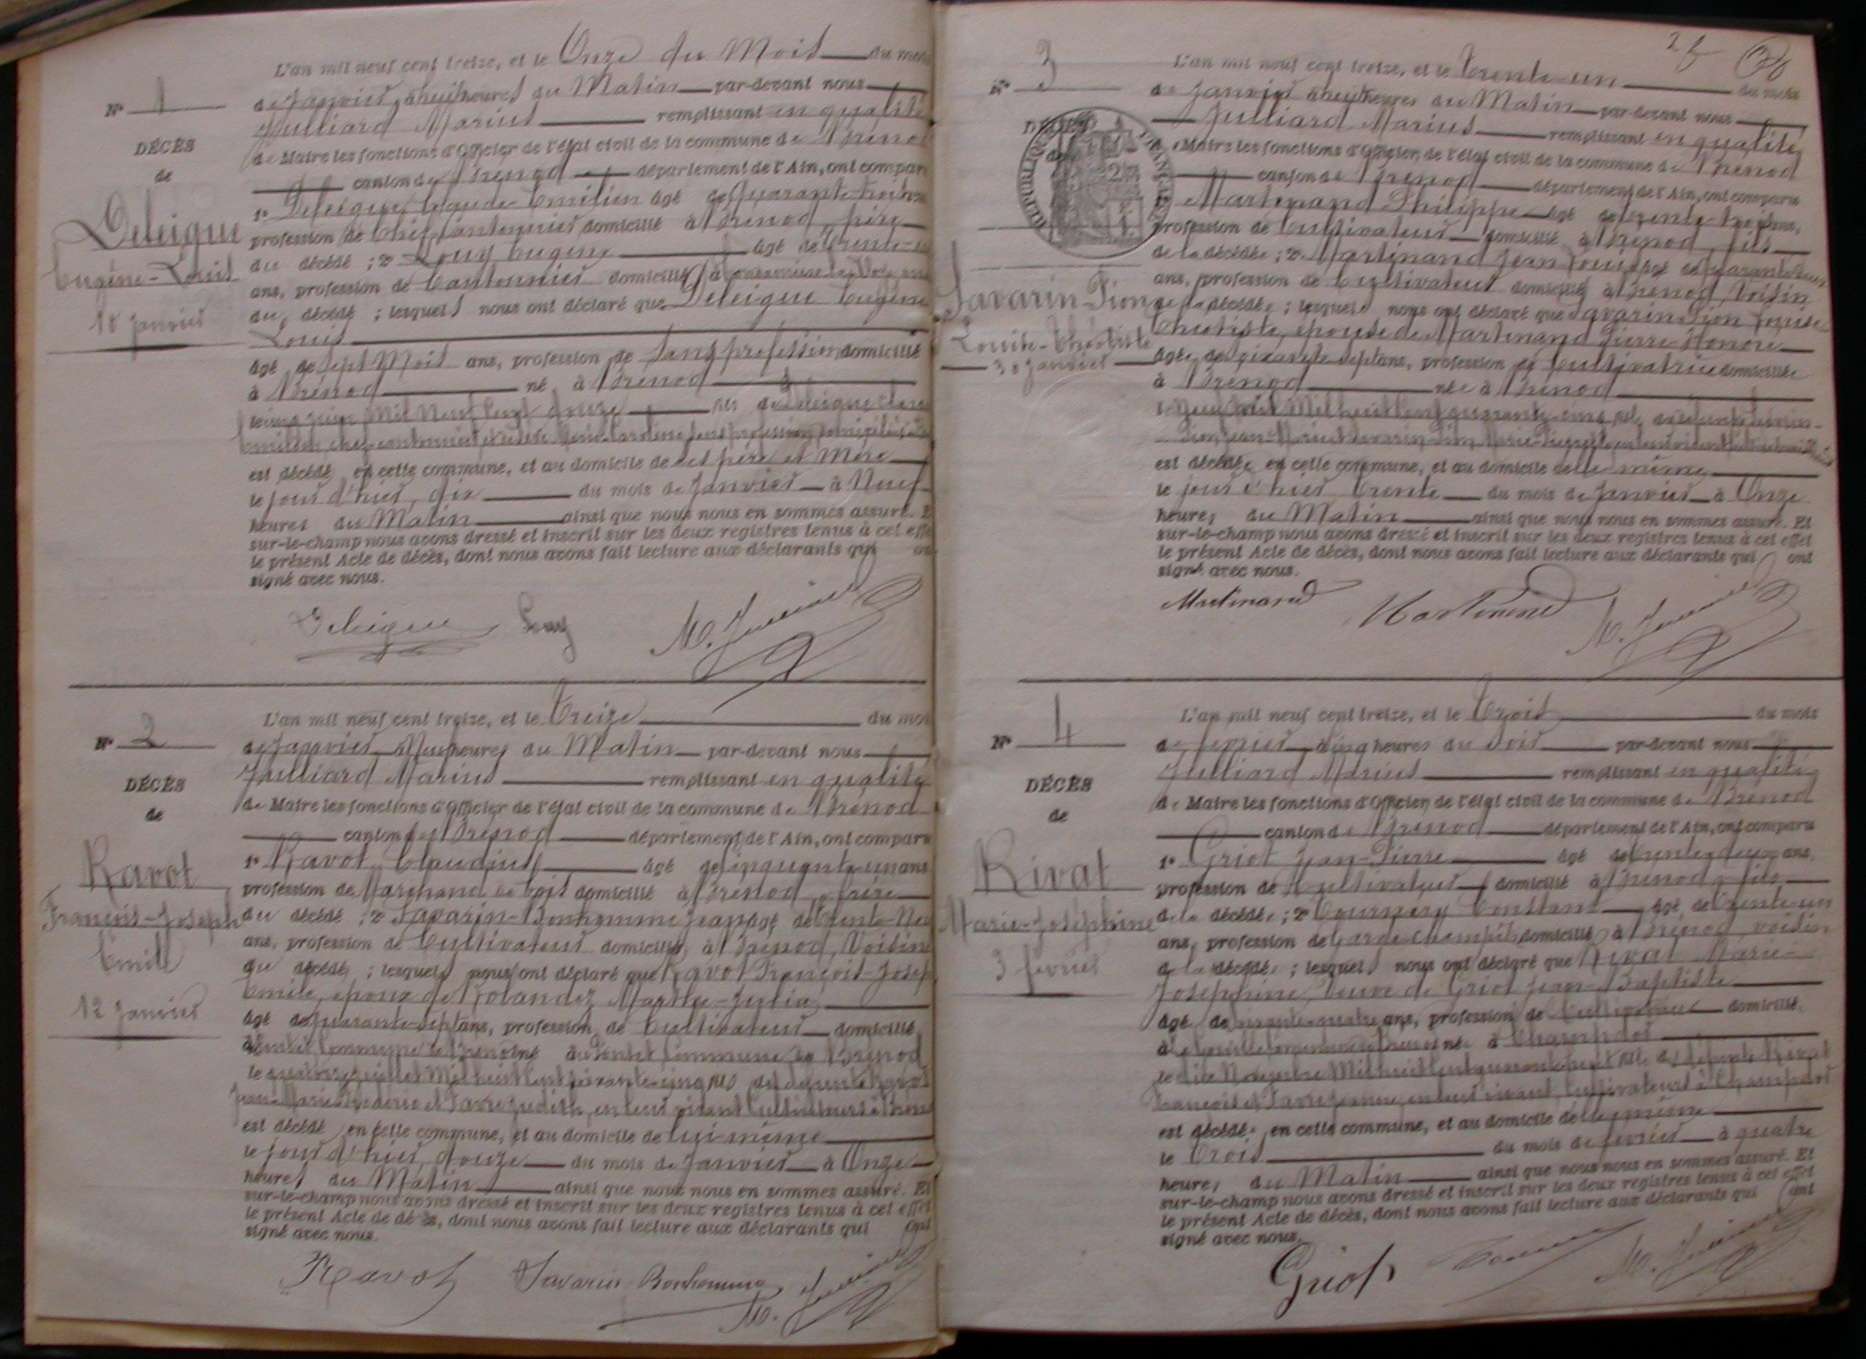 N° 1
DÉCÈS
de
Deleigue
Eugène-Louis
10 Janvier
L'an mil neuf cent treize, et le Onze du Mois du mois
de Janvier, à neuf heures du Matin par-devant nous
Julliard Marius remplissant en qualité
de Maire les fonctions d'Officier de l'état civil de la commune de Brénod
canton de Brénod département de l'Ain, ont comparu
1° Deleigue Emilien âgé de Quarante
profession de Chef Cantonnier domicilié à Brénod père
du décédé ; 2° Louy Eugène âgé de Trente
ans, profession de Cantonnier domicilié à
du décédé ; lesquels nous ont déclaré que Deleigue Eugène
Louis
âgé de Sept Mois ans, profession de Sans profession domicilié
à Brénod né à Brénod
Juin Mil Neuf Cent douze fils de Deleigue
est décédé en cette commune, et au domicile de ses père et Mère
le jour d'hier, dix du mois de Janvier à Neuf
heures du Matin ainsi que nous nous en sommes assuré. Et
sur-le-champ nous avons dressé et inscrit sur les deux registres tenus à cet effet
le présent Acte de décès, dont nous avons fait lecture aux déclarants qui ont
signé avec nous.
Deleigue Louy M. Julliard
N° 2
DÉCÈS
de
Ravot
François-Joseph
Emile
12 Janvier
L'an mil neuf cent treize, et le Treize du mois
de Janvier, à Neuf heures du Matin par-devant nous
Julliard Marius remplissant en qualité
de Maire les fonctions d'Officier de l'état civil de la commune de Brénod
canton de Brénod département de l'Ain, ont comparu
1° Ravot Claudius âgé de Cinquante-un ans
profession de Marchand de bois domicilié à Brénod, frère
du décédé ; 2° Savarin-Bonhomme Jean âgé de Trente-Neuf
ans, profession de Cultivateur domicilié à Brénod, Voisin
du décédé ; lesquels nous ont déclaré que Ravot François-Joseph
Emile, époux de Rolandez Marthe-Julia
âgé de quarante-sept ans, profession de Cultivateur domicilié
Commune de Brénod né Commune de Brénod
le Juillet Mil huit Cent soixante-cinq fils de
en leur vivant Cultivateurs à Brénod
est décédé en cette commune, et au domicile de lui-même
le jour d'hier, douze du mois de Janvier à Onze
heures du Matin ainsi que nous nous en sommes assuré. Et
sur-le-champ nous avons dressé et inscrit sur les deux registres tenus à cet effet
le présent Acte de décès, dont nous avons fait lecture aux déclarants qui ont
signé avec nous.
Ravot Savarin Bonhomme M. Julliard
N° 3
DÉCÈS
RÉPUBLIQUE FRANÇAISE
Savarin-Pion
Louise-Théotiste
30 Janvier
L'an mil neuf cent treize, et le Trente-un du mois
de Janvier à neuf heures du Matin par-devant nous
Julliard Marius remplissant en qualité
de Maire les fonctions d'Officier de l'état civil de la commune de Brénod
canton de Brénod département de l'Ain, ont comparu
Martinand Philippe âgé de trente-trois ans,
profession de Cultivateur domicilié à Brénod, fils
de la décédée ; 2° Martinand Jean-Louis âgé de quarante
ans, profession de Cultivateur domicilié à Brénod, Voisin
de la décédée ; lesquels nous ont déclaré que Savarin-Pion Louise
Théotiste, épouse de Martinand Pierre Honoré
âgée de soixante-sept ans, profession de Cultivatrice domiciliée
à Brénod née à Brénod
Mil huit Cent quarante-cinq
est décédée en cette commune, et au domicile d'elle-même
le jour d'hier Trente du mois de Janvier à Onze
heures du Matin ainsi que nous nous en sommes assuré. Et
sur-le-champ nous avons dressé et inscrit sur les deux registres tenus à cet effet
le présent Acte de décès, dont nous avons fait lecture aux déclarants qui ont
signé avec nous.
Martinand Martinand M. Julliard
N° 4
DÉCÈS
de
Rivat
Marie-Joséphine
3 février
L'an mil neuf cent treize, et le Trois du mois
de février, à cinq heures du Soir par-devant nous
Julliard Marius remplissant en qualité
de Maire les fonctions d'Officier de l'état civil de la commune de Brénod
canton de Brénod département de l'Ain, ont comparu
1° Griot Jean-Pierre âgé de trente-deux ans,
profession de Cultivateur domicilié à Brénod, fils
de la décédée ; 2° Constant âgé de trente-un
ans, profession de Garde Champêtre domicilié à Brénod, voisin
de la décédée ; lesquels nous ont déclaré que Rivat Marie-
Joséphine, Veuve de Griot Jean-Baptiste
âgée de ans, profession de domiciliée
née à Champdor
le Novembre Mil huit Cent fille de Rivat
François et en leur vivant, Cultivateurs à Champdor
est décédée en cette commune, et au domicile d'elle-même
le Trois du mois de février à quatre
heures du Matin ainsi que nous nous en sommes assuré. Et
sur-le-champ nous avons dressé et inscrit sur les deux registres tenus à cet effet
le présent Acte de décès, dont nous avons fait lecture aux déclarants qui ont
signé avec nous.
Griot M. Julliard